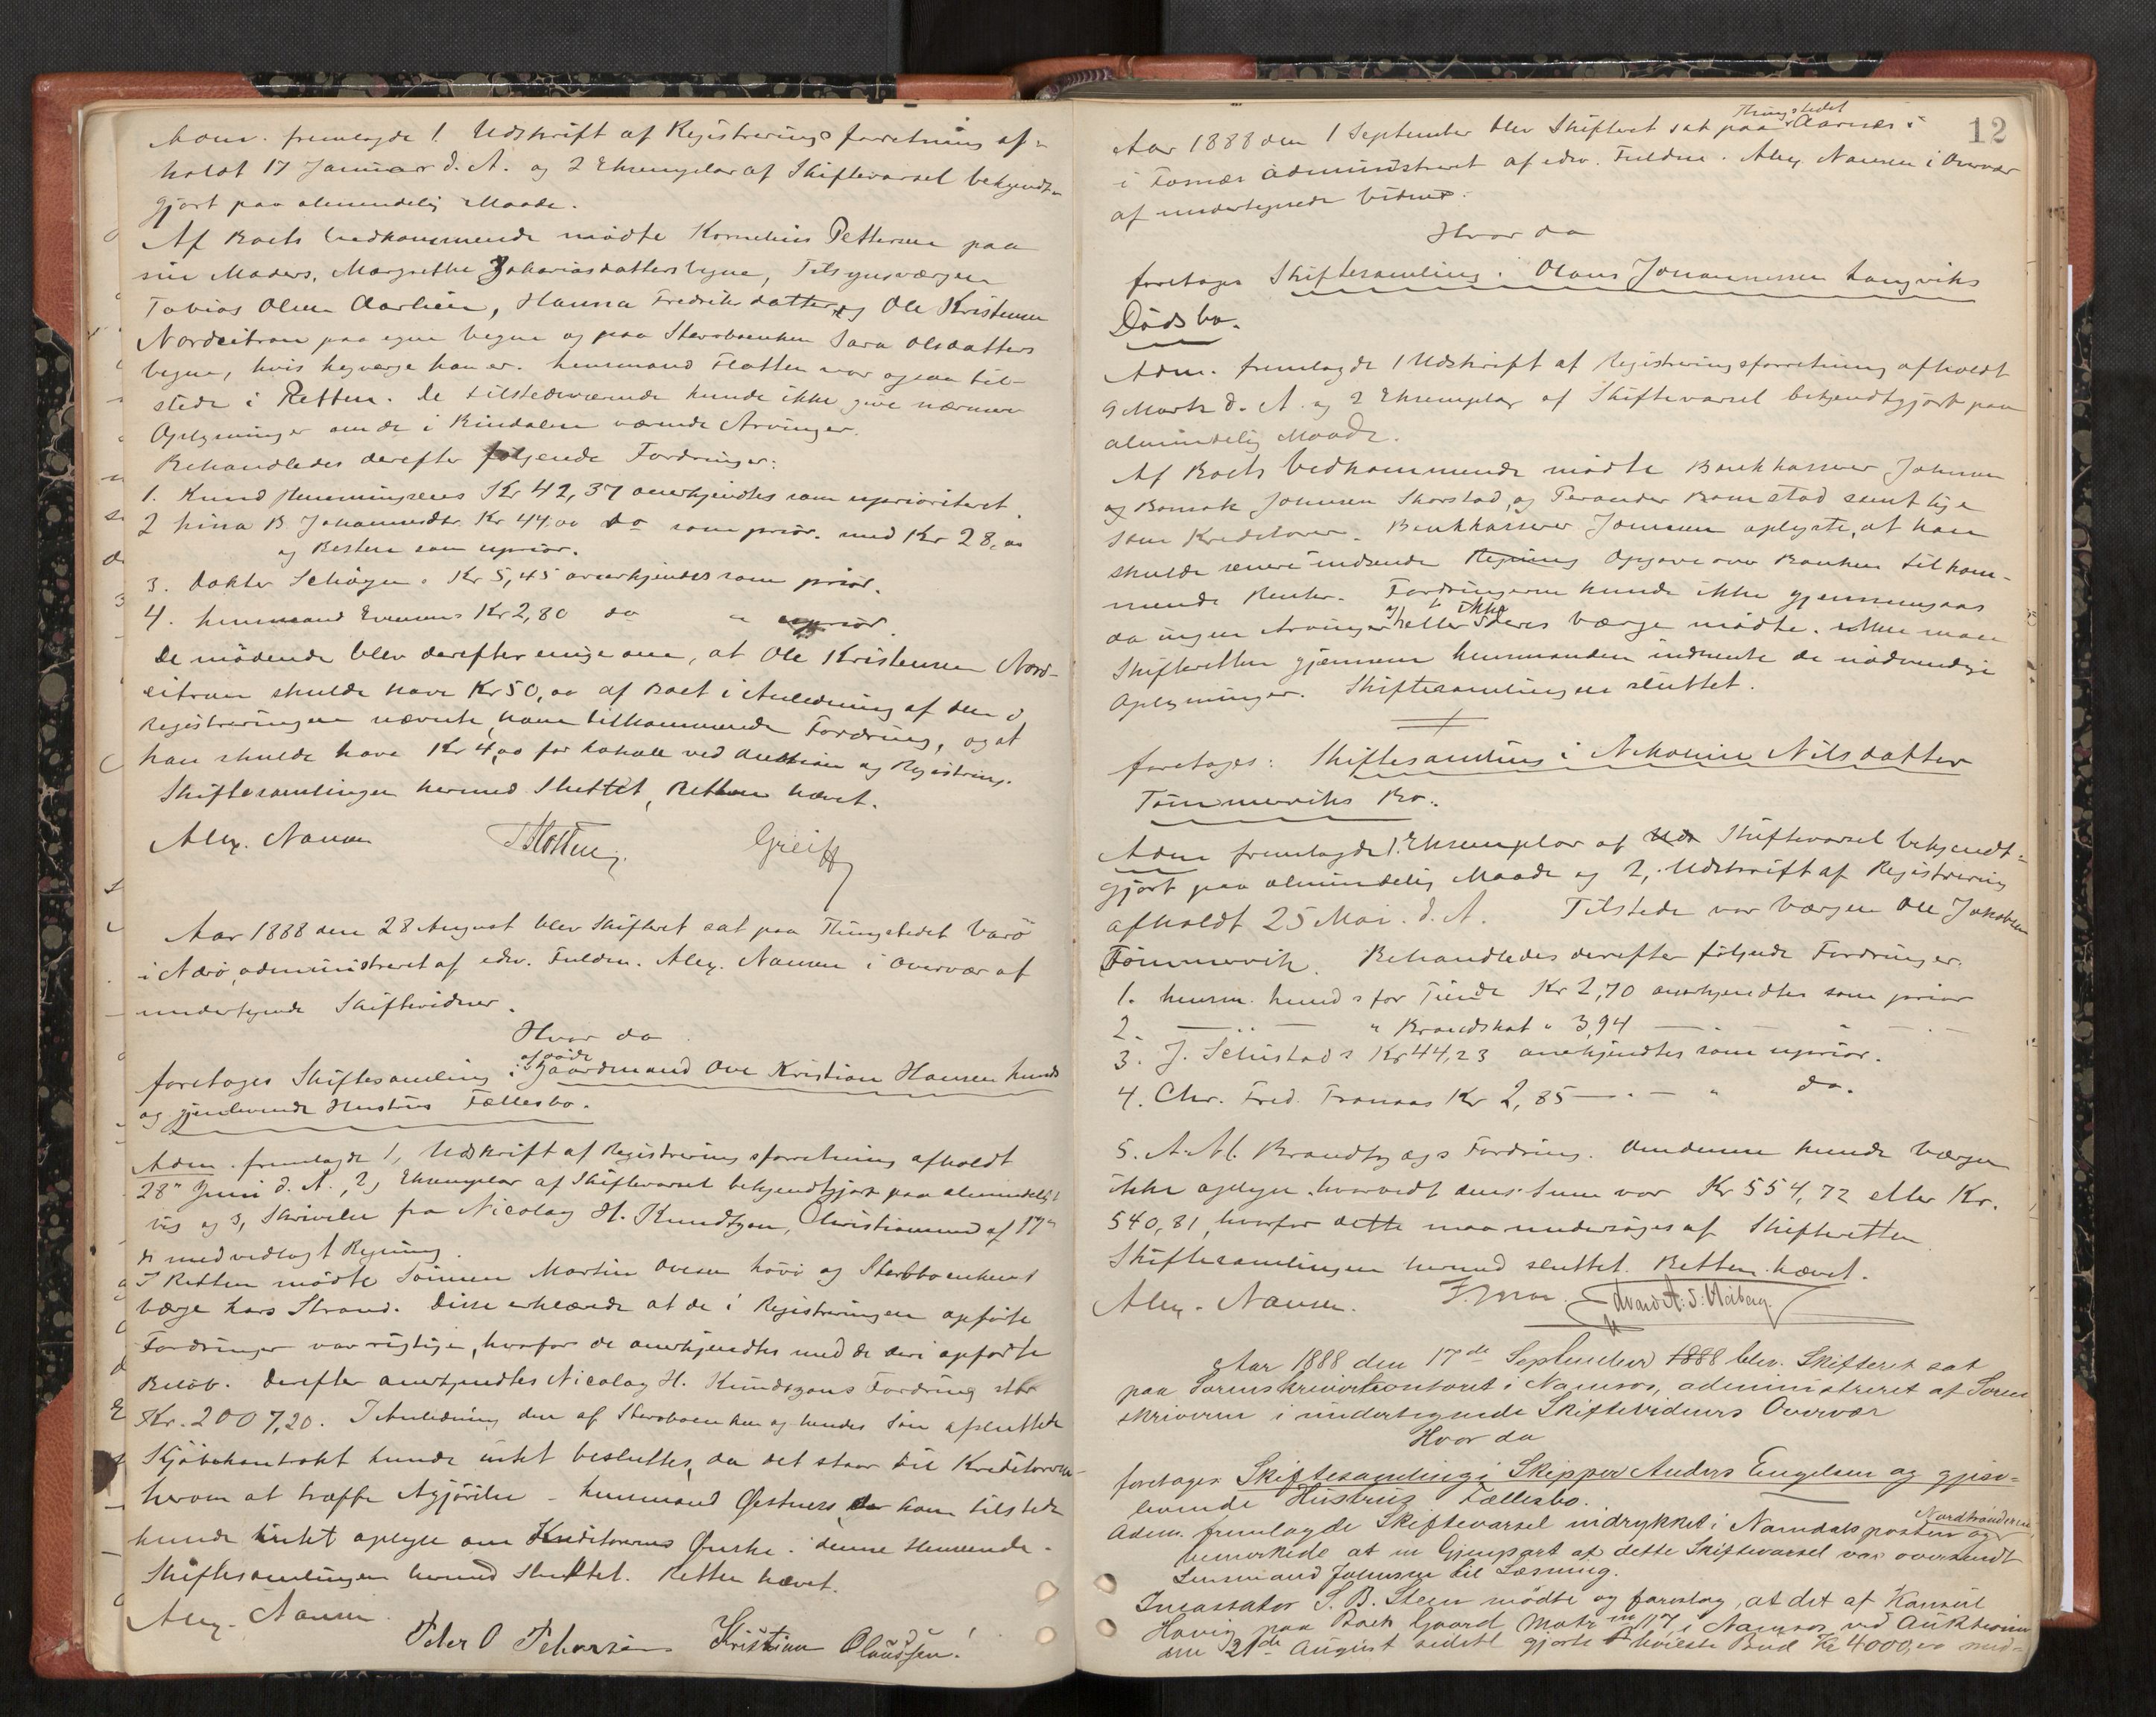 Adm. fremlagde 1. Udskrift af Registreringsforretning af-
holdt 17 Januar d. A. og 2 Exemplar af Skiftevarsel bekjendt-
gjort paa almindelig Maade.
Af Boets Vedkommende mødte Kornelius Pettersen paa
sin Moders, Margrethe Zakariasdatters Vegne, Tilsynsværgen
Tobias Olsen Aarlien, Hanna Fredriksdatter, og Ole Kristensen
Nordeitran paa egne Vegne og paa Stervboenken Sara Olsdatters
Vegne, hvis Lagværge han er. Lensmand Flotten var ogsaa til-
stede i Retten. De tilstedeværende kunde ikke give nærmere
Oplysninger om de i Bindalen værende Arvinger.
Behandledes derefter følgende Fordringer:
1. Knud Henningsens Kr 42,37 anerkjendtes som uprioriteret.
2 Lina B. Johannesdtr. Kr 44,00 do som prior. med Kr 28,00
og Resten som uprior.
3. Doktor Kr 5,45 anerkjendes som prior.
4. Lensmand Kr 2,80 do " uprior.
De mødende blev derefter enige om, at Ole Kristensen Nord-
eitran skulde have Kr 50,00 af Boet i Anledning af den i
Registreringen nævnte, ham tilkommende Fordring, og at
han skulde have Kr 4,00 for Lokale ved Auktion og Registrering.
Skiftesamlingen hermed sluttet, Retten hævet.
Alex. Nansen Greiff
Aar 1888 den 28 August blev Skifteret sat paa Thingstedet Varø
i Nærø, administreret af edsv. Fuldm. Alex. Nansen i Overvær af
undertegnede Skiftevidner.
Hvor da
foretoges Skiftesamling i afdøde Gaardmand Ove Kristian Hansen Lunds
og gjenlevende Hustrus Fællesbo.
Adm. fremlagde 1, Udskrift af Registreringsforretning afholdt
28de Juni d. A., 2, Exemplar af Skiftevarsel bekjendtgjort paa almindelig
vis og 3, Skrivelse fra Nicolay H. Knudtzon, Christianssund af 17de
ds med vedlagt Regning.
I Retten mødte Sønnen Martin Ovesen Løvø og Stervboenkens
Værge Lars Strand. Disse erklærede at de i Registreringen opførte
Fordringer var rigtige, hvorfor de anerkjendtes med de deri opførte
Beløb. Derefter anerkjendtes Nicolay H. Knudtzons Fordring stor
Kr. 2007,20. I Anledning den af Stervboenken og hendes Søn afsluttede
Kjøbekontrakt kunde intet besluttes, da det staar til Kreditorerne
herom at træffe Afgjørelse. Lensmand kom tilstede
kunde intet oplyse om Kreditorernes Ønske i denne Henseende.
Skiftesamlingen hermed sluttet. Retten hævet.
Alex. Nansen.
Peter O Pettersen Kristian Claussen!
12
Aar 1888 den 1 September blev Skifteret sat paa Thingstedet Aarnes i
i Fosnæs administreret af edsv. Fuldm. Alex. Nansen i Overvær
af undertegnede Vidner:
Hvor da
foretoges Skiftesamling i Olaus Johannessen Langviks
Dødsbo.
Adm. fremlagde 1 Udskrift af Registreringsforretning afholdt
9 Marts d. A. og 2 Exemplar af Skiftevarsel bekjendtgjort paa
almindelig Maade.
Af Boets Vedkommende mødte Bankkasserer Johnsen
og Johnsen Skorstad, og samtlige
som Kreditorer. Bankkasserer Jonsen oplyste, at han
skulde senere indsende Regning Opgave over Banken tilkom-
mende Renter. Fordringerne kunde ikke gjennemgaaes
da ingen Arvinger heller ikke deres Værge mødte. Men maa
Skifteretten gjennem Lensmanden indhente de nødvendige
Oplysninger. Skiftesamlingen sluttet.
foretoges: Skiftesamling i Nikoline Nilsdatter
Tømmerviks Bo.
Adm fremlagde 1. Exemplar af Uds Skiftevarsel bekjendt-
gjort paa almindelig Maade og 2, Udskrift af Registrering
afholdt 25 Mai d. A. Tilstede var Værgen Ole Jakobsen
Tømmervik. Behandledes derefter følgende Fordringer.
1. Lensm. Lund's for Tiende Kr 2,70 anerkjendtes som prior
2. — " — " Brandskat " 3,94 — " — " —
3. J. Kr 44,23 anerkjendtes som uprior.
4. Chr. Fred. Tranaas Kr 2,85 — . — " do.
5. A. M. Brandtzægs Fordring. Om denne kunde Værgen
ikke oplyse, hvorvidt dens Sum var Kr 554,72 eller Kr.
540,81, hvorfor dette maa undersøges af Skifteretten.
Skiftesamlingen hermed sluttet. Retten hævet.
Alex. Nansen. Edvard A. S.
Aar 1888 den 17de September 1888 blev Skifteret sat
paa Sorenskriverkontoret i Namsos, administreret af Soren
skriveren i undertegnede Skiftevidners Overvær
Hvor da
foretoges Skiftesamling i Skipper Anders Engelsen og gjen-
levende Hustrus Fællesbo.
Adm. fremlagde Skiftevarsel indrykket i Namdalsposten og Nordtrønderen,
bemerkede at en Gjenpart af dette Skiftevarsel var oversendt
Lensmand Johnsen til Læsning.
Incassator S. B. Steen mødte og foreslog, at det af Konsul
Havig paa Boets Gaard Matr. No 117 i Namsos ved Auktionen
den 21de August sidstl gjorte høieste Bud Kr 4000,00 med-